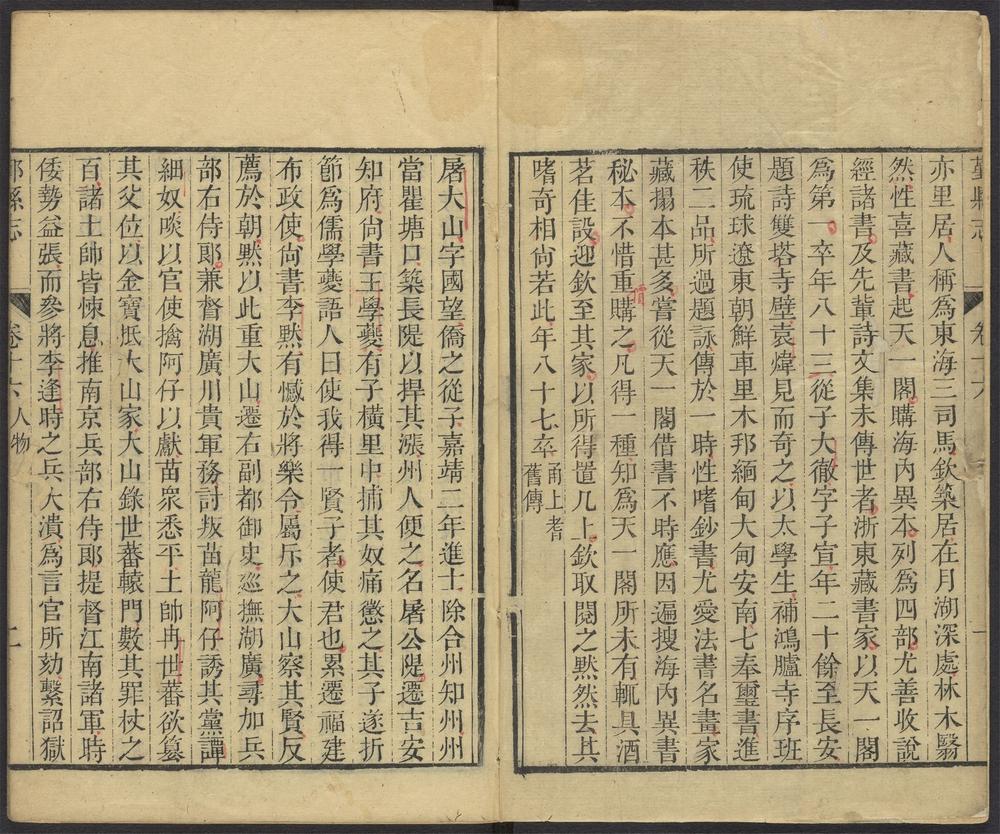 鄞縣志 卷十六 一
亦里居人稱爲東海三司馬欽築居在月湖深處林木翳
然性喜藏書起天一閣購海內異本列爲四部尤善收說
經諸書及先輩詩文集未傳世者浙東藏書家以天一閣
爲第一卒年八十三從子大徹字子宣年二十餘至長安
題詩雙塔寺壁袁煒見而奇之以太學生補鴻臚寺序班
使琉球遼東朝鮮車里木邦緬甸大甸安南七奉璽書進
秩二品所過題詠傳於一時性嗜鈔書尤愛法書名畫家
藏搨本甚多嘗從天一閣借書不時應因遍搜海內異書
秘本不惜重價購之凡得一種知爲天一閣所未有輒具酒
茗佳設迎欽至其家以所得置几上欽取閱之默然去其
嗜奇相尚若此年八十七卒甬上耆
舊傳
屠大山字國望僑之從子嘉靖二年進士除合州知州州
當瞿塘口築長隄以捍其漲州人便之名屠公隄遷吉安
知府尚書王學夔有子橫里中捕其奴痛懲之其子遂折
節爲儒學夔語人曰使我得一賢子者使君也累遷福建
布政使尚書李默有憾於將樂令屬斥之大山察其賢反
薦於朝默以此重大山遷右副都御史巡撫湖廣尋加兵
部右侍郎兼督湖廣川貴軍務討叛苗龍阿仔誘其黨譚
細奴啖以官使擒阿仔以獻苗衆悉平土帥冉世蕃欲篡
其父位以金寶抵大山家大山錄世蕃轅門數其罪杖之
百諸土帥皆悚息推南京兵部右侍郎提督江南諸軍時
倭勢益張而參將李逢時之兵大潰爲言官所劾繫詔獄
鄞縣志 卷十六 人物 二